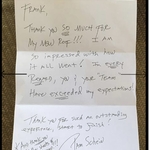 FRANK,
THANK YOU SO MUCH FOR
MY NEW ROOF!!! I AM
SO IMPRESSED WITH HOW
IT ALL WENT! IN EVERY
REGARD, YOU & YOUR TEAM
HAVE EXCEEDED MY EXPECTATIONS!
THANK YOU FOR SUCH AN OUTSTANDING
EXPERIENCE, START TO FINISH!